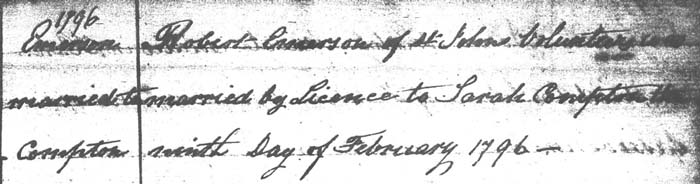 1796
Emerson Robert Emerson of St Johns Voluntary was
married to married by Licence to Sarah Compton the
Compton ninth Day of February 1796 —